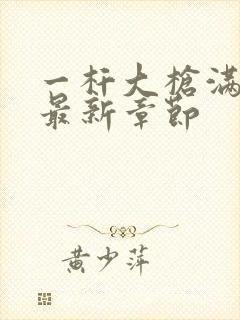 一杆大槍满
最新章节
黄少萍